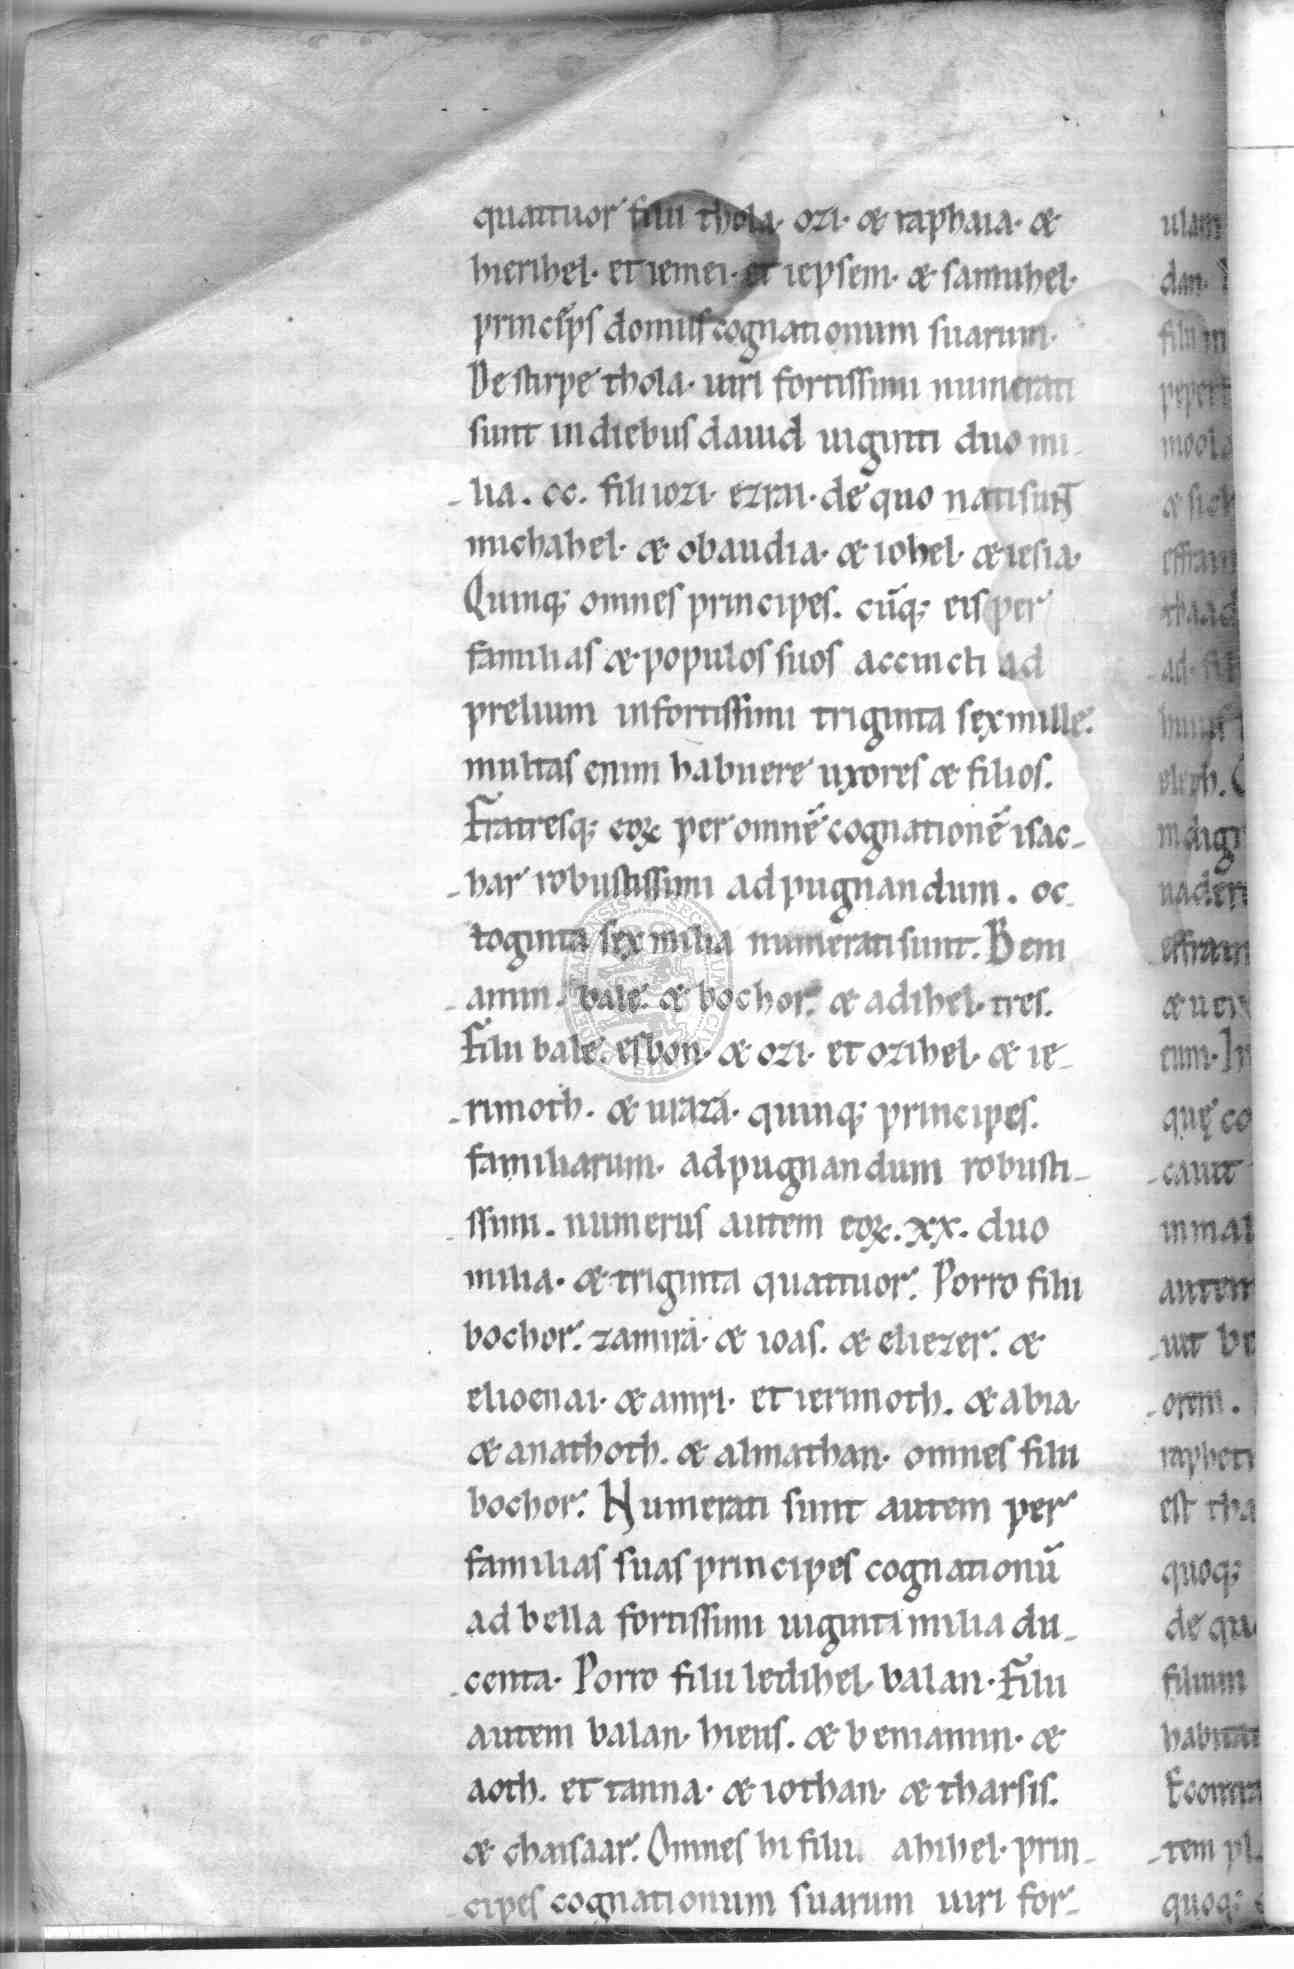 quattuor filii thola· ozi· & raphaia· &
hierihel· et iemei· et iepsem· & samuhel·
princeps domus cognationum suarum·
De stirpe thola· uiri fortissimi numerati
sunt in diebus dauid uiginti duo mi-
lia. cc. filii ozi· ezrai· de quo nati sunt
michahel· & obaudia· & iohel· & iesia·
Quinq; omnes principes. cūq; eis per
familias & populos suos accincti ad
prelium in fortissimi triginta sex mille.
multas enim habuere uxores & filios.
Fratresq; eoꝝ per omnē cognationē isac-
har robustissimi ad pugnandum. oc-
toginta sex milia numerati sunt. Beni
amin· bale. & bochor. & adihel· tres.
Filii bale. esbon· & ozi· et ozihel· & ie-
rimoth. & uraza· quinq; principes.
familiarum· ad pugnandum robusti-
ssimi. numerus autem eoꝝ. xx. duo
milia· & triginta quattuor. Porro filii
bochor. zamira· & ioas. & eliezer. &
elioenai· & amri· et ierimoth. & abia·
& anathoth. & almathan· omnes filii
bochor. Numerati sunt autem per
familias suas principes cognationū
ad bella fortissimi uiginti milia du-
centa· Porro filii ledihel· balan· Filii
autem balan· hieus. & beniamin· &
aoth. et tanna· & iothan· & tharsis.
& chaisaar. Omnes hi filii ahihel· prin-
cipes cognationum suarum uiri for-
dan·
moola
& sic
ad·
eleph.
indig
effraim
cum· In
quę co
cauit
in mal
autem
uit be
orem.
est tha
quoq;
de qu
filium
habitat
E contra
tem
quoq;